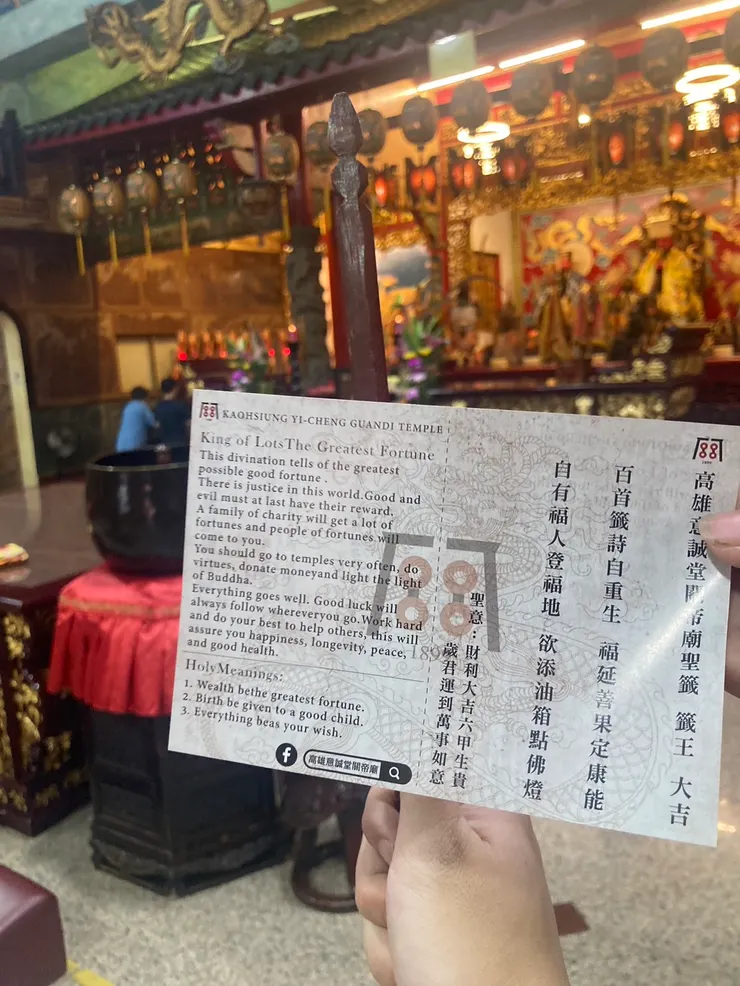 KAOHSIUNG YI-CHENG GUANDI TEMPLE
King of LotsThe Greatest Fortune
This divination tells of the greatest
possible good fortune .
There is justice in this world.Good and
evil must at last have their reward.
A family of charity will get a lot of
fortunes and people of fortunes will
come to you.
You should go to temples very often, do
virtues, donate moneyand light the light
of Buddha.
Everything goes well. Good luck will
always follow whereveryou go.Work hard
and do your best to help others, this will
assure you happiness, longevity, peace,
and good health.
HolyMeanings:
1. Wealth bethe greatest fortune.
2. Birth be given to a good child.
3. Everything beas your wish.
高雄意誠堂關帝廟
1899
高雄意誠堂關帝廟聖籤 籤王 大吉
百首籤詩自重生 福延善果定康能
自有福人登福地 欲添油箱點佛燈
聖意：財利大吉六甲生貴
歲君運到萬事如意